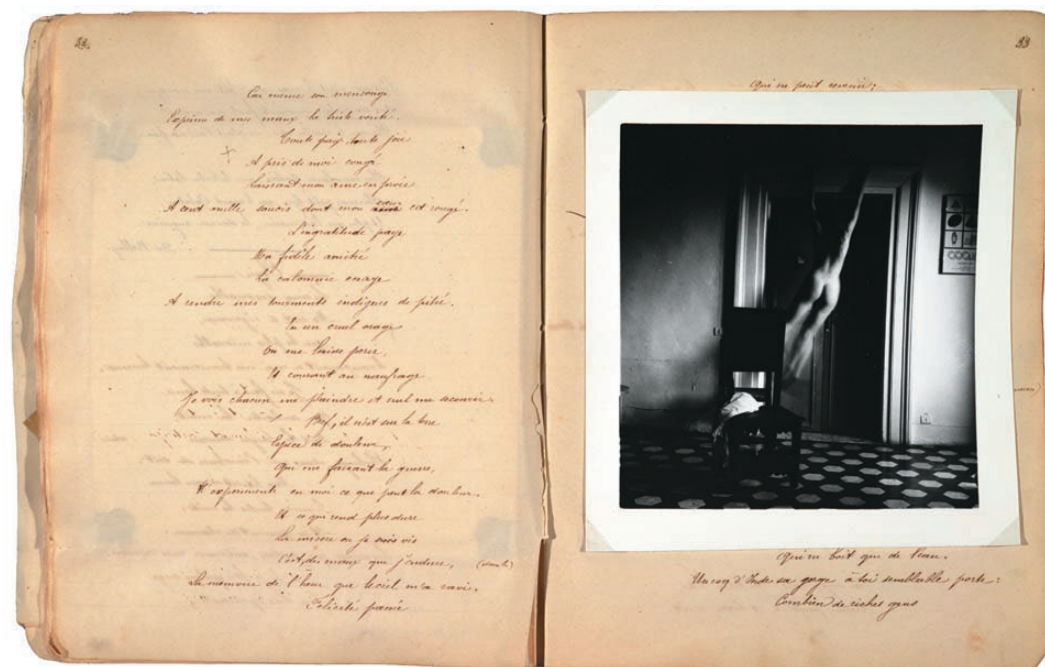 32.
Car même son mensonge
Exprime de mes maux la triste verité.
Toute paix, toute joie
A pris de moi congé
Laissant mon ame en proie
A cent mille soucis dont mon coeur est rongé.
L'ingratitude paye
Ma fidèle amitié
La calomnie essaye
A rendre mes tourments indignes de pitié.
En un cruel orage
On me laisse perir,
Et courant au naufrage
Je vois chacun me plaindre et nul me secourir.
Bref, il n'est sur la terre
Espèce de douleur,
Qui me faisant la guerre,
N'experimente en moi ce que peut la douleur.
Et ce qui rend plus dure
La misère où je vis
C'est, des maux que j'endure,
La memoire de l'heur que le ciel m'a ravie.
Félicité passée
33
Qui ne peut revenir;
Qui ne boit que de l'eau.
Un coq d'Inde sa gorge à toi semblable porte:
Combien de riches gens